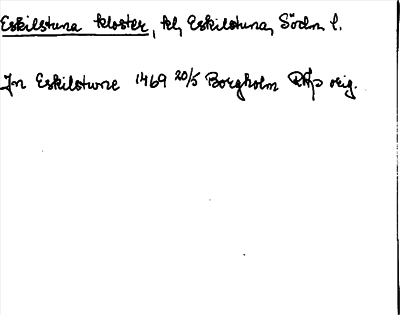 Eskilstuna kloster, kl, Eskilstuna, Södm l.
Jn Eskilstwne 1469 20/5 Borgholm RAp orig.